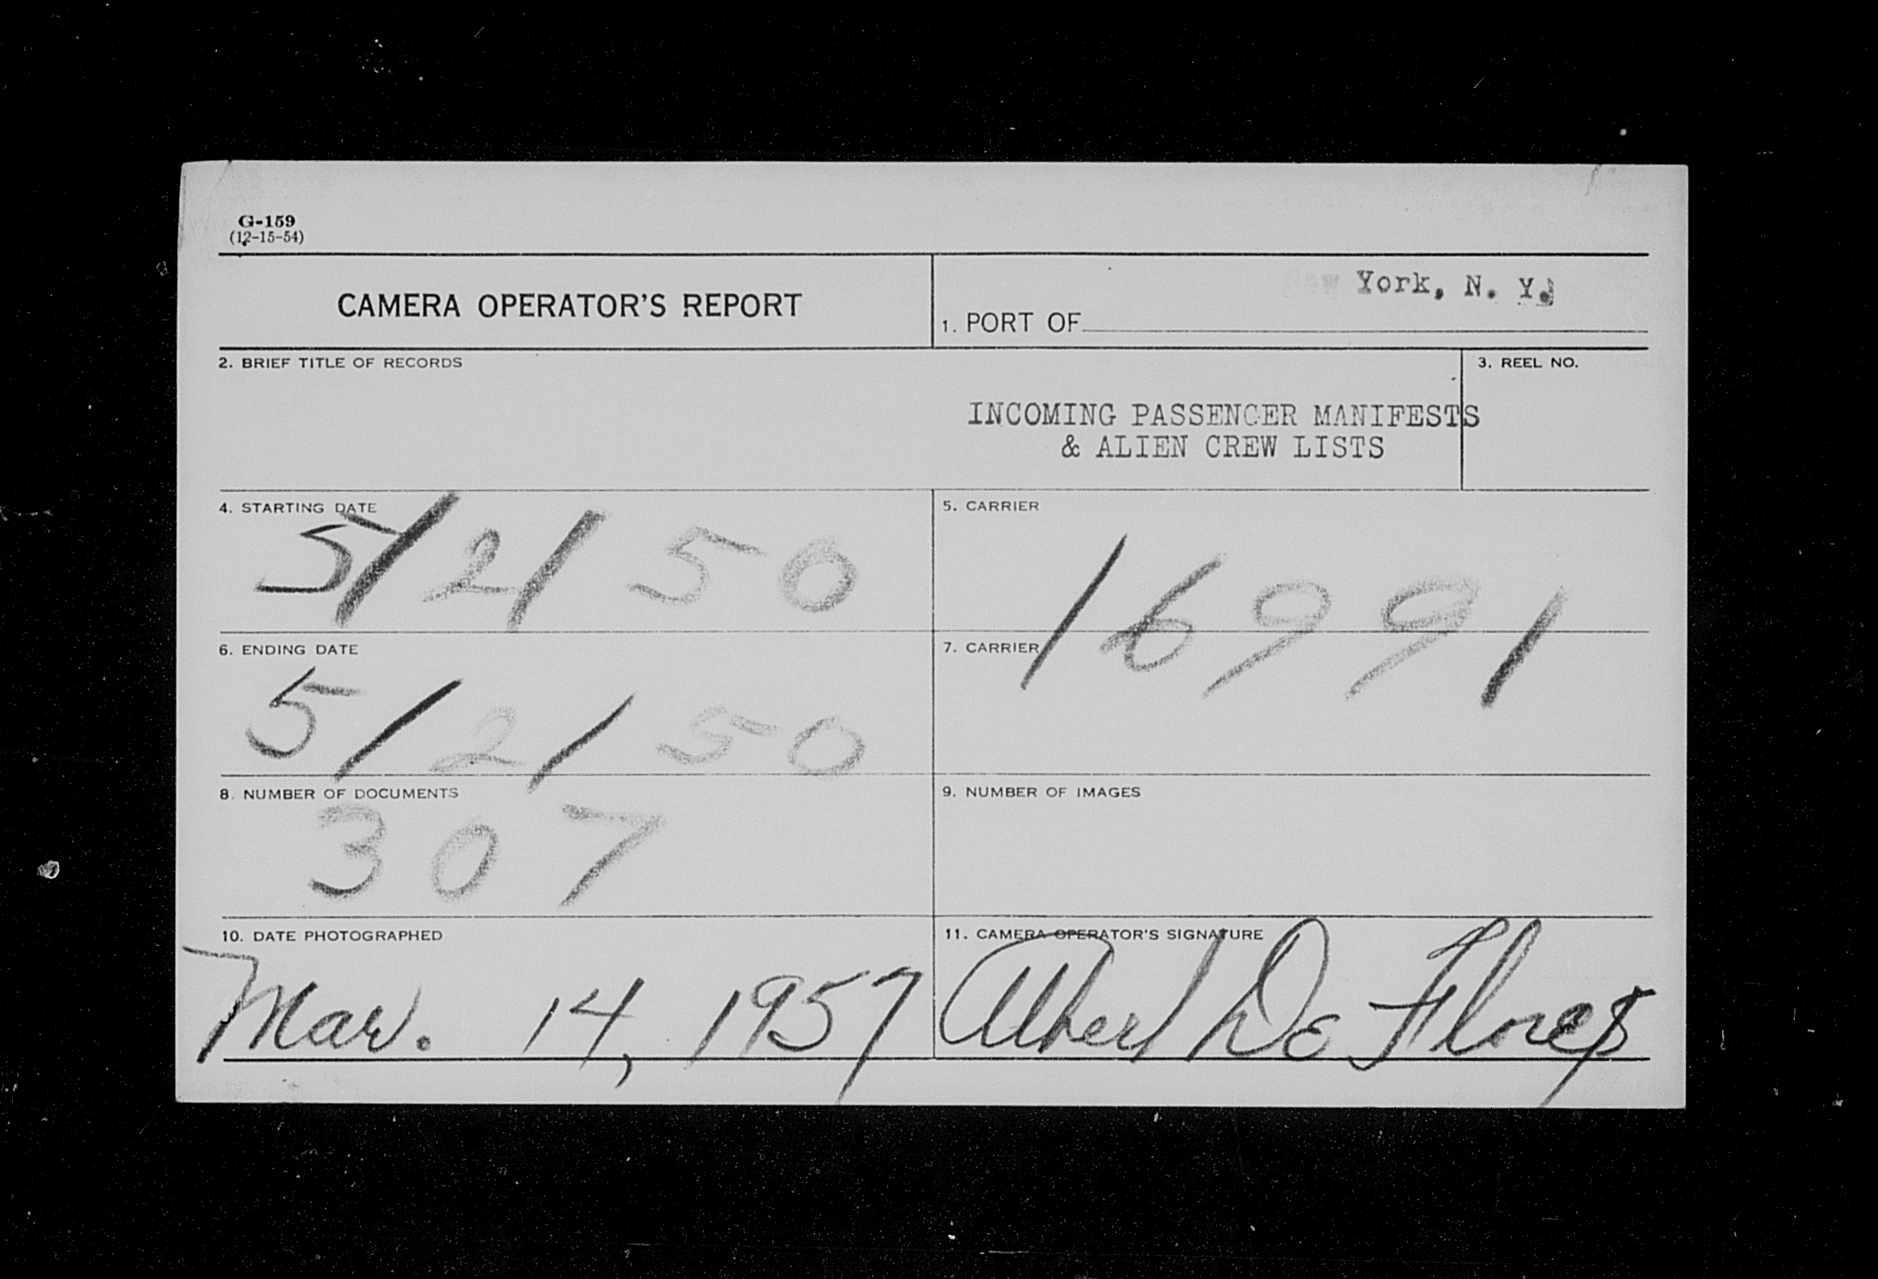 G-159
(12-15-54)
CAMERA OPERATOR'S REPORT
1. PORT OF New York, N. Y.
2. BRIEF TITLE OF RECORDS
INCOMING PASSENGER MANIFESTS
& ALIEN CREW LISTS
3. REEL NO.
4. STARTING DATE
5/2/50
5. CARRIER
16991
6. ENDING DATE
5/2/50
7. CARRIER
8. NUMBER OF DOCUMENTS
307
9. NUMBER OF IMAGES
10. DATE PHOTOGRAPHED
Mar. 14, 1957
11. CAMERA OPERATOR'S SIGNATURE
Albert De Flores